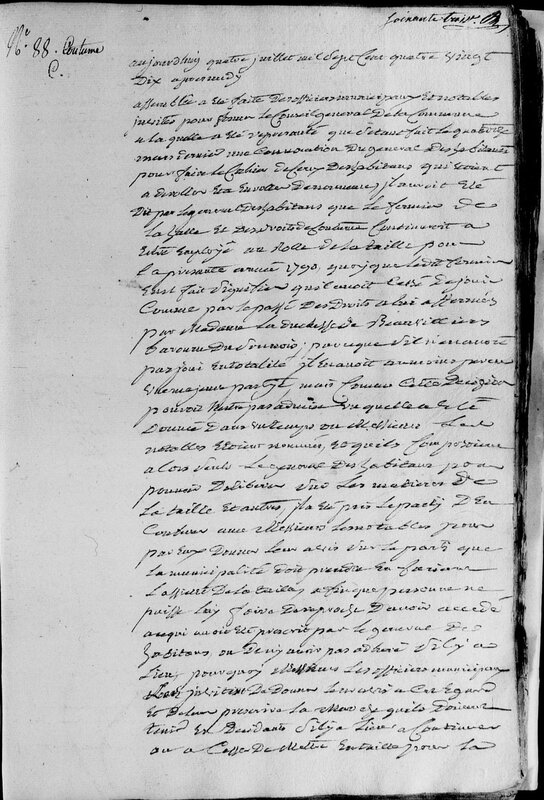 Soixante trois
Nº. 88. Coutume
C.
aujourdhuy quatre juillet mil sept Cent quatre vingt
Dix apres midy
assemblé a été faite des officiers municipaux Et notables
invités pour former le Conseil general De la Commune
a la quelle a été représanté que s'étant fait le quatorze
mars dernier une Convocation Du general Des habitants
pour faire le des habitans qui étoient
a il auroit Eté
Dit par le general Des habitans que Le fermier De
la halle Et Des droits de Coutume Continueroit a
Estre Employé au Rolle De la taille pour
la présante année 1790, quoy que ledit fermier
Eut fait qu'il avoit Cessé De jouir
Comme par le passé Des Droits a lui affermés
par Madame La duchesse De Beauvilliers
baronne Du ; parceque s'il n'en avoit
pas joui En totalité, il En avoit au moins perceu
une majeure partie, mais Comme Cette Décision
pouvoit N'estre pas admise Vu quelle a été
Donnée Dans un temps ou Messieurs Les
notables étoient nommés, Et qu'ils Composoient
alors seuls Le general Des habitans pour
pouvoir Deliberer sur Les matieres De
La taille Et autres, il a Eté pris le party D'En
aux Messieurs les notables pour
par Eux Donner Leur avis sur le party que
la municipalité Doit prendre En
L'assiete De la taille, afin que personne ne
puisse luy faire De reproche D'avoir accedé
a ce qui avoit Eté prescrit par le general des
habitans ou De n'y avoir pas adheré s'il y a
Lieu, pourquoy Messieurs Les officiers municipaux
De Donner a Cet Egard
Et De leur prescrire la marche qu'ils Doivent
tenir En Decidant s'il y a Lieu a Continuer
ou a Cesser De Mettre En taille pour la